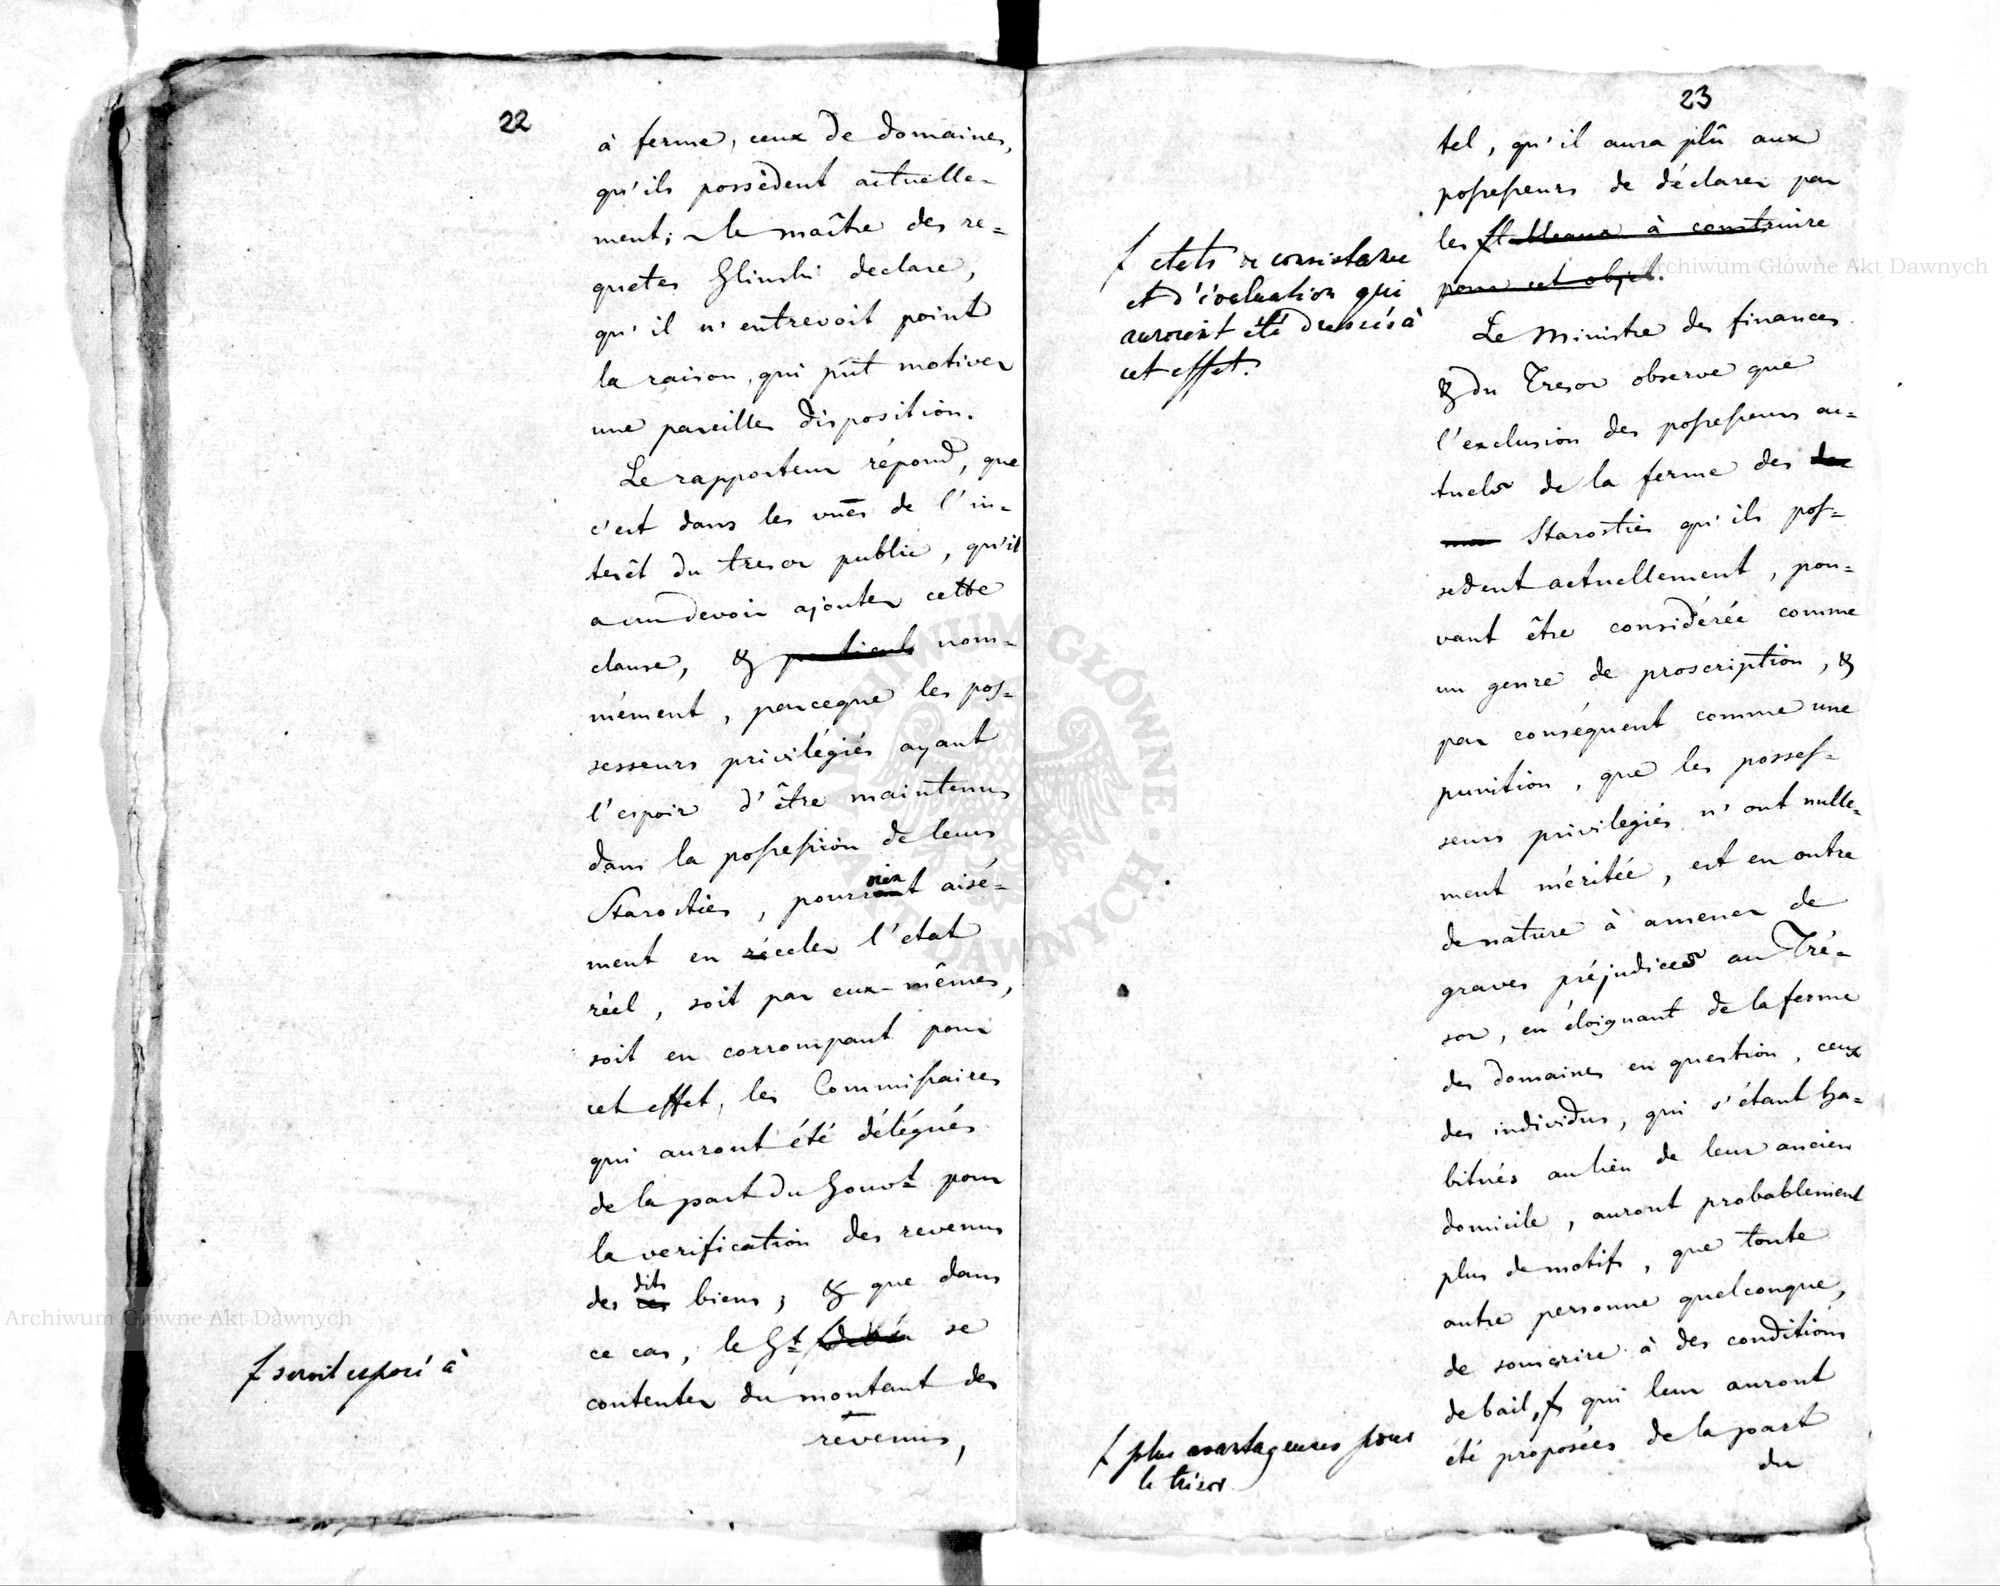 22
à ferme, ceux de domaines,
qu'ils possèdent actuelle-
ment; le maître des re=
quetes Glinski declare,
qu'il n'entrevoit point
la raison, qui pût motiver
une pareille disposition.
Le rapporteur répond, que
c'est dans les vues de l'in=
terêt du tresor public, qu'il
a cru devoir ajouter cette
clause, & nom=
mément, parceque les pos=
sesseurs privilégiés ayant
l'espoir d'être maintenus
dans la possession de leurs
Starosties, pourroient aisé=
ment en receler l'état
réel, soit par eux-mêmes,
soit en corrompant pour
cet effet, les Commissaires
qui auront été délégués
de la part du Gouvt pour
la verification des revenus
des dits ces biens; & que dans
ce cas, le Gt se
ƒ seroit exposé à
contenter du montant des
revenus,
23
tel, qu'il aura plû aux
possesseurs de déclarer par
les ƒ tableaux à construire
pour cet objet.
ƒ etats de consistance
et d'évaluation qui
auroient été dressés à
cet effet.
Le Ministre des finances
& du Tresor observe que
l'exclusion des possesseurs ac=
tuels de la ferme des
Starosties qu'ils pos=
sedent actuellement, pou=
vant être considérée comme
un genre de proscription, &
par conséquent comme une
punition, que les posses=
seurs privilegiés n'ont nulle=
ment méritée, est en outre
de nature à amener de
graves préjudices au Tré=
sor, en éloignant de la ferme
des domaines en question, ceux
des individus, qui s'étant ha=
bitués au lieu de leur ancien
domicile, auront probablement
plus de motifs, que toute
autre personne quelconque,
de souscrire à des conditions
de bail, ƒ qui leur auront
ƒ plus avantageuses pour
le trésor
été proposées de la part
du
Archiwum Główne Akt Dawnych
Archiwum Główne Akt Dawnych
ARCHIWUM GŁÓWNE AKT DAWNYCH